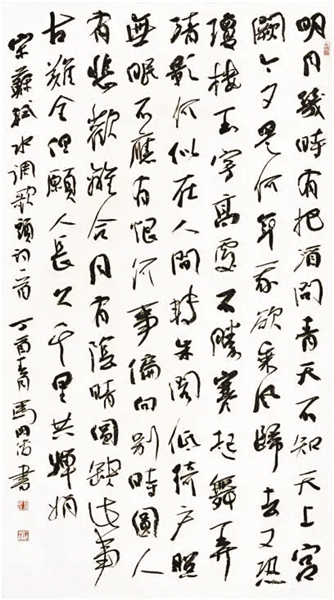 明月幾時有把酒問青天不知天上宮
闕今夕是何年我欲乘風歸去又恐
瓊樓玉宇高處不勝寒起舞弄
清影何似在人間轉朱閣低綺戶照
無眠不應有恨何事偏向別時圓人
有悲歡離合月有陰晴圓缺此事
古難全但願人長久千里共嬋娟
宋蘇軾水調歌頭詞一首 丁酉 書